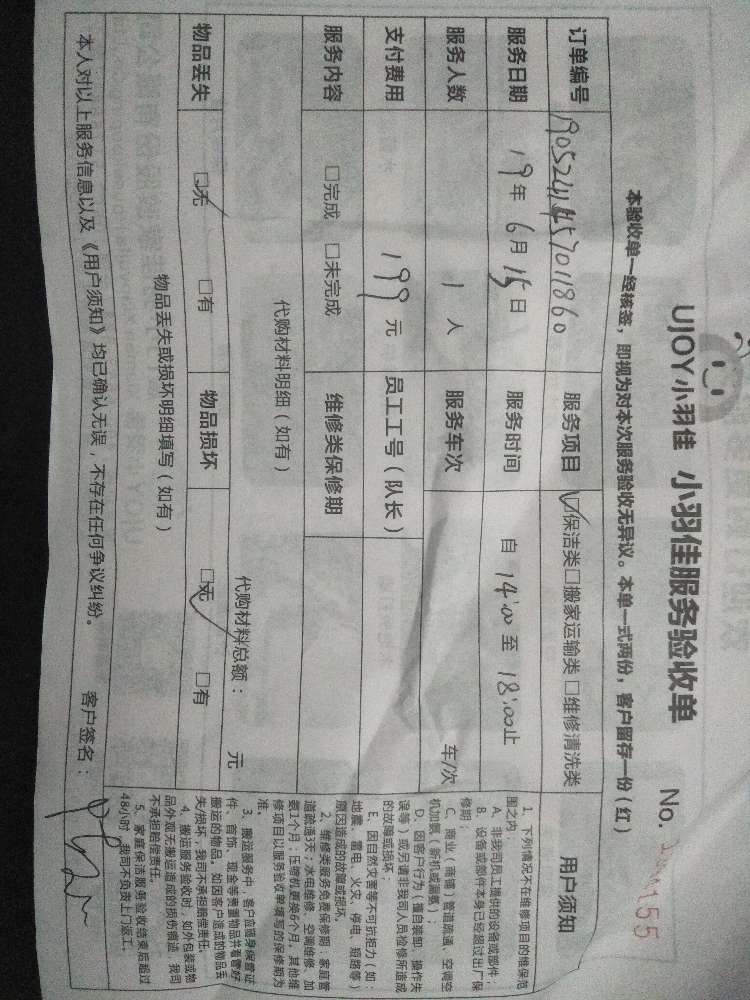 UJOY小羽佳 小羽佳服务验收单 No.
本验收单一经核签，即视为对本次服务验收无异议。本单一式两份，客户留存一份（红）
订单编号 服务项目 □保洁类□搬家运输类□维修清洗类
服务日期 19年6月15日 服务时间 自14:00至18:00止
服务人数 1人 服务车次 车/次
支付费用 199元 员工工号（队长）
服务内容 □完成 □未完成 维修类保修期
代购材料明细（如有）
代购材料总额： 元
物品丢失 □无 □有 物品损坏 □无 □有
物品丢失或损坏明细填写（如有）
本人对以上服务信息以及《用户须知》均已确认无误，不存在任何争议纠纷。 客户签名：
用户须知
1、下列情况不在维修项目的维保范
围之内：
A、非我司员工提供的设备或部件；
B、设备或部件本身已经超过出厂保
修期；
C、商业（商铺）管道疏通、空调空
机加氨（新机或漏氨）；
D、因客户行为（擅自装卸、操作失
误等）或另请非我司人员检修所造成
的故障或损坏；
E、因自然灾害等不可抗拒力（如：
地震、雷电、火灾、停电、短路等）
原因造成的故障或损坏。
2、维修类服务免费保修期：家庭管
道疏通3天；水电维修、空调维修、加
氨1个月；压缩机更换6个月，其他维
修项目以服务验收单填写的保修期为
准。
3、搬运服务中，客户应随身保管证
件、首饰、现金等贵重物品并看管好
搬运的物品。如因客户造成的物品丢
失/损坏，我司不承担赔偿责任。
4、搬运服务验收时，如外包装或物
品外观无搬运造成的损伤痕迹，我司
不承担赔偿责任。
5、家庭保洁服务验收结束后超过
48小时，我司不负责上门返工。